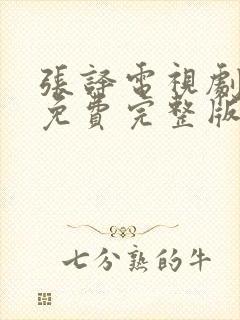 張譯電視劇
免費完整版
七分熟的牛